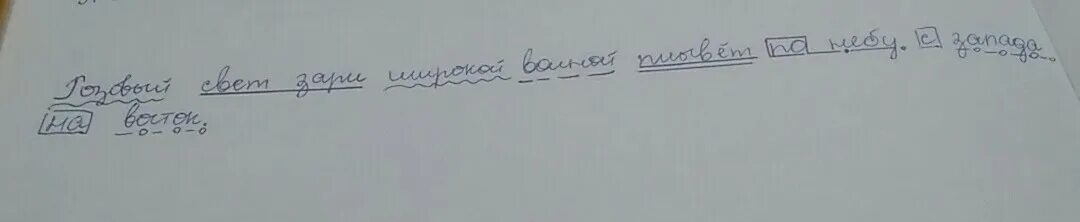 Розовый свет зари широкой волной плывёт по небу. с запада
на восток.